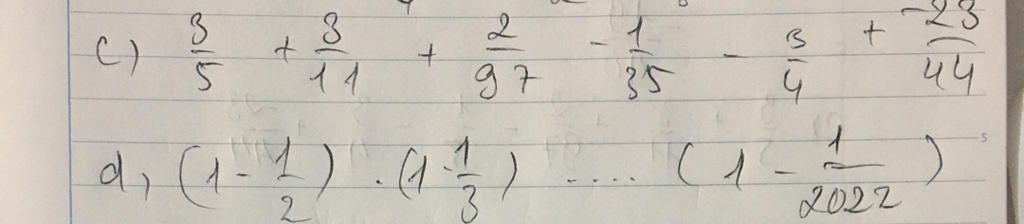 c) 3/5 + 3/11 + 2/97 - 1/35 - 3/4 + -23/44
d, (1 - 1/2) . (1 - 1/3) ..... (1 - 1/2022)